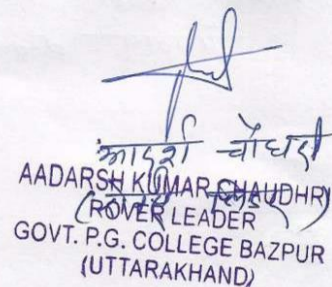 आदर्श चौधरी
AADARSH KUMAR CHAUDHRY
(ROVER LEADER
GOVT. P.G. COLLEGE BAZPUR
(UTTARAKHAND)